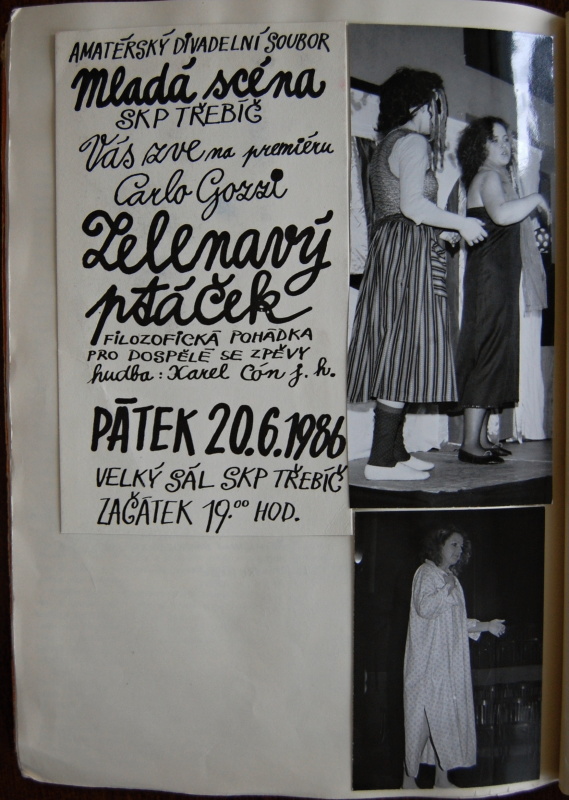 AMATÉRSKÝ DIVADELNÍ SOUBOR
Mladá scéna
SKP TŘEBÍČ
Vás zve na premiéru
Carlo Gozzi
Zelenavý
ptáček
FILOZOFICKÁ POHÁDKA
PRO DOSPĚLÉ SE ZPĚVY
hudba: Karel Cón j. h.
PÁTEK 20.6.1986
VELKÝ SÁL SKP TŘEBÍČ
ZAČÁTEK 19.00 HOD.